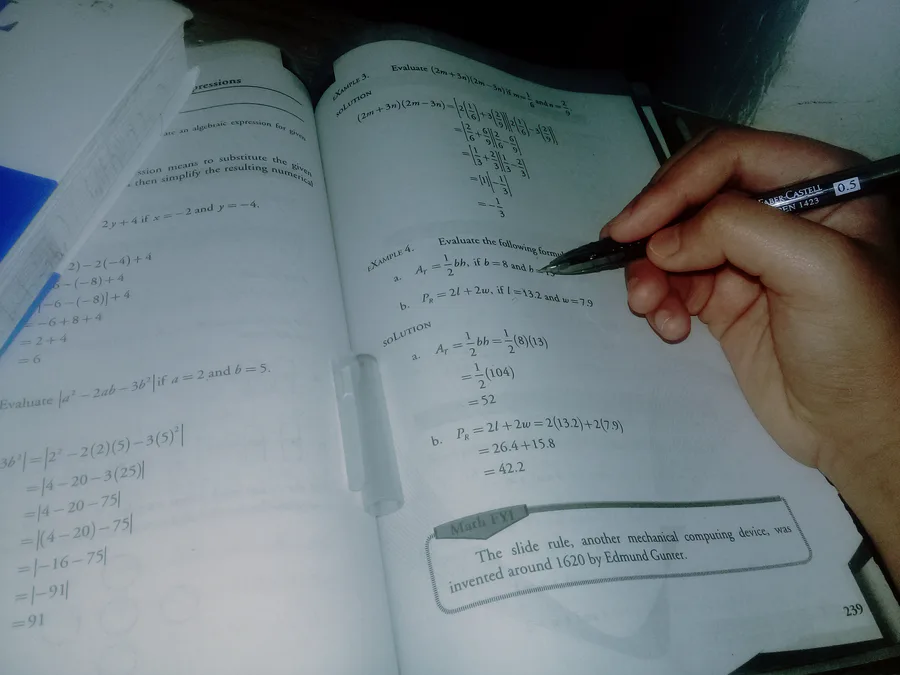 ressions
an algebraic expression for given
ssion means to substitute the given
then simplify the resulting numerical
2y + 4 if x = −2 and y = −4.
2) − 2(−4) + 4
− (−8) + 4
−6 − (−8)] + 4
= −6 + 8 + 4
= 2 + 4
= 6
Evaluate |a² − 2ab − 3b²| if a = 2 and b = 5.
3b²| = |2² − 2(2)(5) − 3(5)²|
= |4 − 20 − 3(25)|
= |4 − 20 − 75|
= |(4 − 20) − 75|
= |−16 − 75|
= |−91|
= 91
EXAMPLE 3. Evaluate (2m + 3n)(2m − 3n) if m = 1/6 and n = 2/9
SOLUTION
(2m + 3n)(2m − 3n) = [2(1/6) + 3(2/9)][2(1/6) − 3(2/9)]
= [2/6 + 6/9][2/6 − 6/9]
= [1/3 + 2/3][1/3 − 2/3]
= [1][−1/3]
= −1/3
EXAMPLE 4. Evaluate the following formu
a. A_T = 1/2 bh, if b = 8 and h = 13
b. P_R = 2l + 2w, if l = 13.2 and w = 7.9
SOLUTION
a. A_T = 1/2 bh = 1/2 (8)(13)
= 1/2 (104)
= 52
b. P_R = 2l + 2w = 2(13.2) + 2(7.9)
= 26.4 + 15.8
= 42.2
Math FYI
The slide rule, another mechanical computing device, was
invented around 1620 by Edmund Gunter.
239
FABER-CASTELL
PEN 1423 0.5